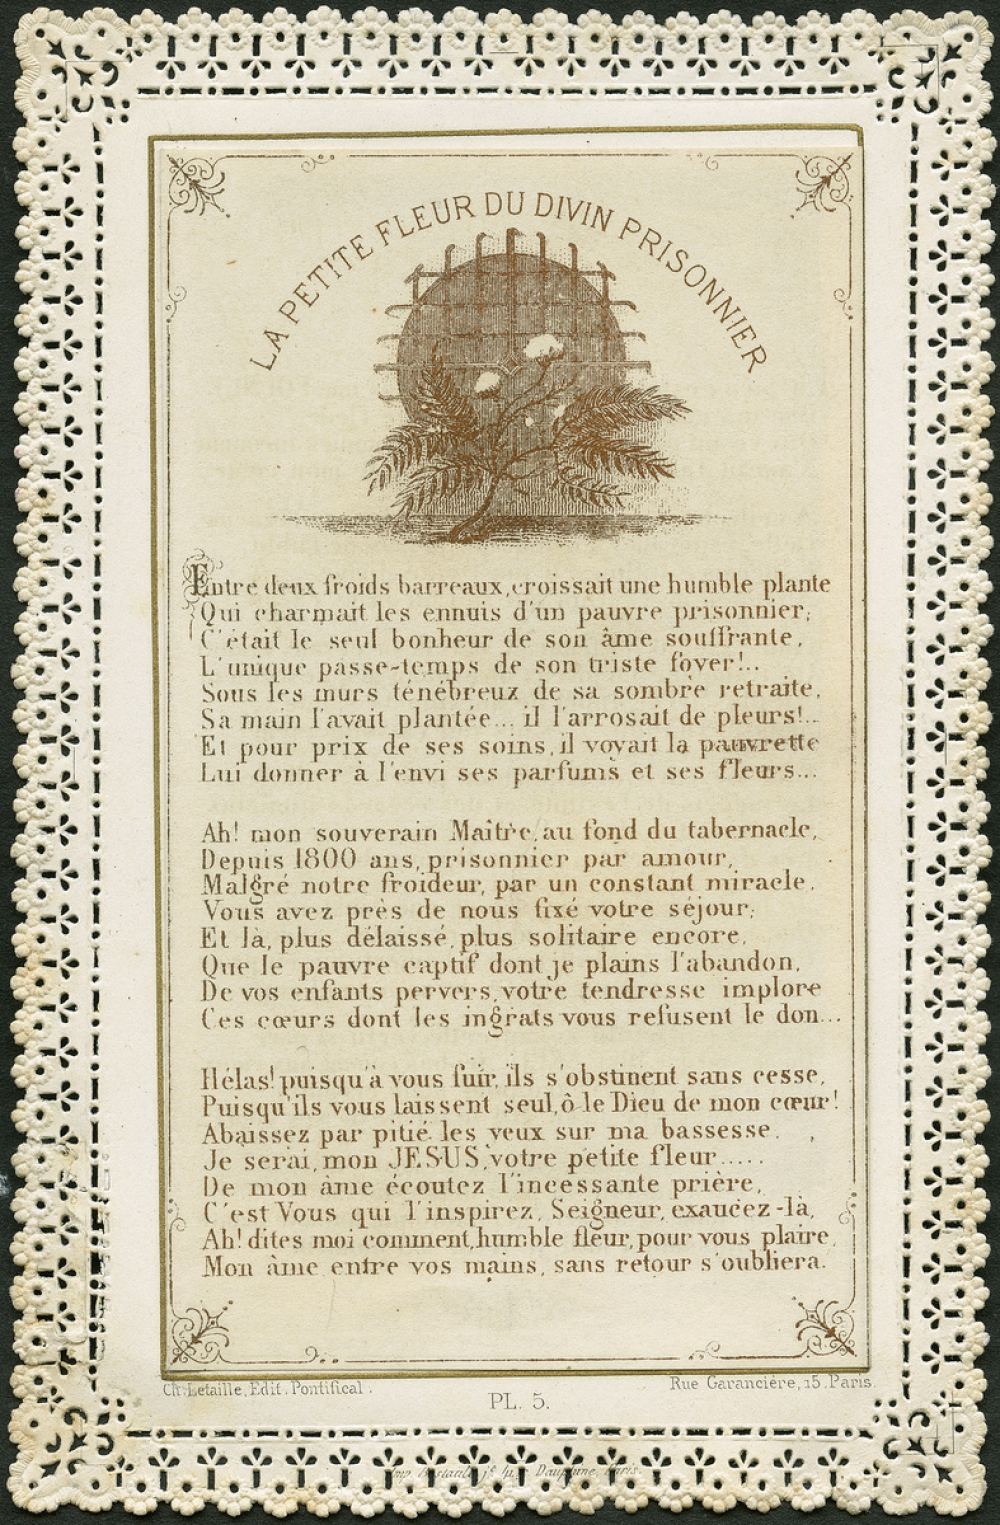 LA PETITE FLEUR DU DIVIN PRISONNIER
Entre deux froids barreaux, croissait une humble plante
Qui charmait les ennuis d'un pauvre prisonnier;
C'était le seul bonheur de son âme souffrante,
L'unique passe-temps de son triste foyer!..
Sous les murs ténébreux de sa sombre retraite,
Sa main l'avait plantée... il l'arrosait de pleurs!..
Et pour prix de ses soins, il voyait la pauvrette
Lui donner à l'envi ses parfums et ses fleurs...
Ah! mon souverain Maître, au fond du tabernacle,
Depuis 1800 ans, prisonnier par amour,
Malgré notre froideur, par un constant miracle,
Vous avez près de nous fixé votre séjour;
Et là, plus délaissé, plus solitaire encore,
Que le pauvre captif dont je plains l'abandon,
De vos enfants pervers, votre tendresse implore
Ces cœurs dont les ingrats vous refusent le don...
Hélas! puisqu'à vous fuir, ils s'obstinent sans cesse,
Puisqu'ils vous laissent seul, ô le Dieu de mon cœur!
Abaissez par pitié les yeux sur ma bassesse,
Je serai, mon JESUS, votre petite fleur.....
De mon âme écoutez l'incessante prière,
C'est Vous qui l'inspirez, Seigneur, exaucez-là,
Ah! dites moi comment, humble fleur, pour vous plaire,
Mon âme entre vos mains, sans retour s'oubliera.
Ch. Letaille, Edit. Pontifical.
Rue Garancière, 15. Paris.
PL. 5.
Dauphine, Paris.